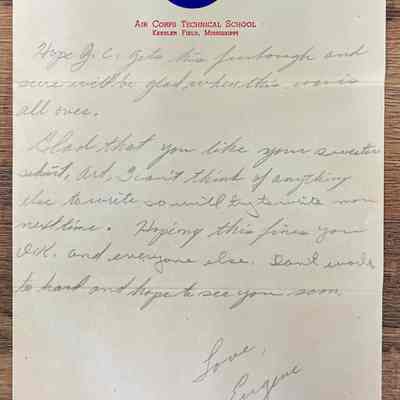 Air Corps Technical School
Keesler Field, Mississippi
Hope J.C. gets this furlough and
sure will be glad when this war is
all over.
Glad that you like your sweater
shirt, Art, I can't think of anything
else to write so will try to write more
next time. Hoping this fines you
O.K. and everyone else. Don't work
to hard and hope to see you soon.
Love,
Eugene